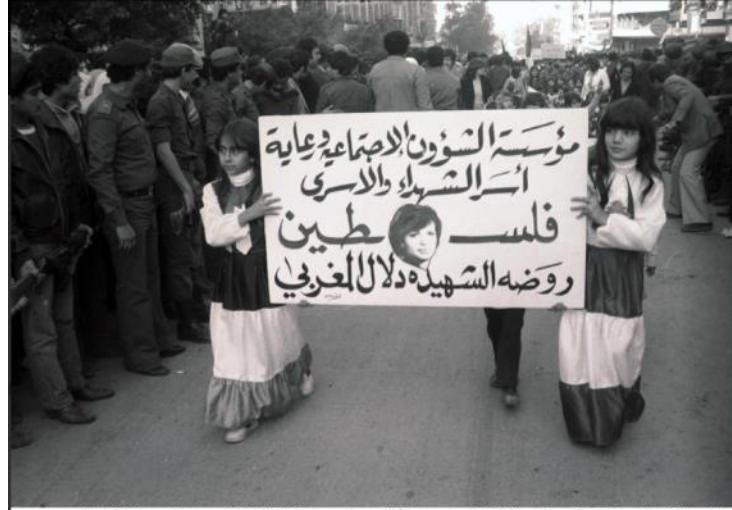 مؤسسة الشؤون الاجتماعية ورعاية
أسر الشهداء والاسرى
فلسطين
روضه الشهيده دلال المغربي